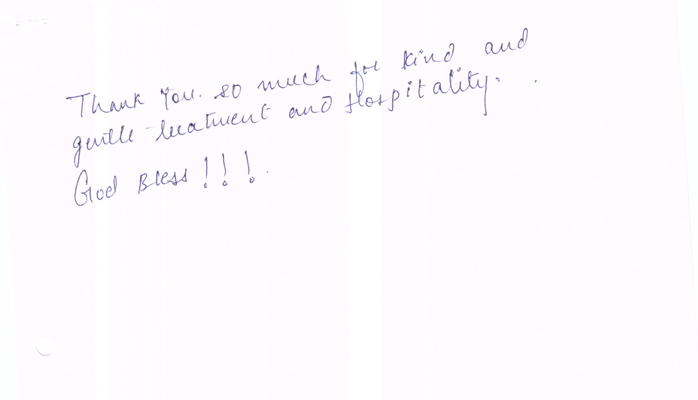 Thank You. so much for kind and
gentle treatment and Hospitality.
God Bless !!!.